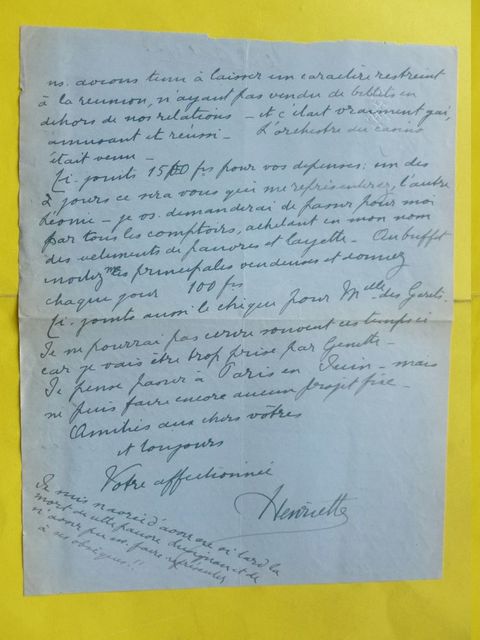 ns. avions tenu à laisser un caractère restreint
à la réunion, n'ayant pas vendu de billets en
dehors de nos relations – et c'était vraiment gai,
amusant et réussi – L'orchestre du casino
était venu –
Ci-joints frs pour vos dépenses: un des
2 jours ce sera vous qui me représenterez, l'autre
Léonie – je vs. demanderai de passer pour moi
par tous les comptoirs, achetant en mon nom
des vêtements de pauvres et layette – Au buffet
invitez les principales vendeuses et donnez
chaque jour 100 frs
Ci-joints aussi le chèque pour Melle des
Je ne pourrai pas écrire souvent ces temps ci
car je vais être trop prise par Ginette –
Je pense passer à Paris en Juin – mais
ne puis faire encore aucun projet fixe –
Amitiés aux chers vôtres
et toujours
Votre affectionnée
Henriette
Je suis navrée d'avoir su si tard la
mort de cette pauvre et de
n'avoir pu me faire représenter
à ses obsèques!!